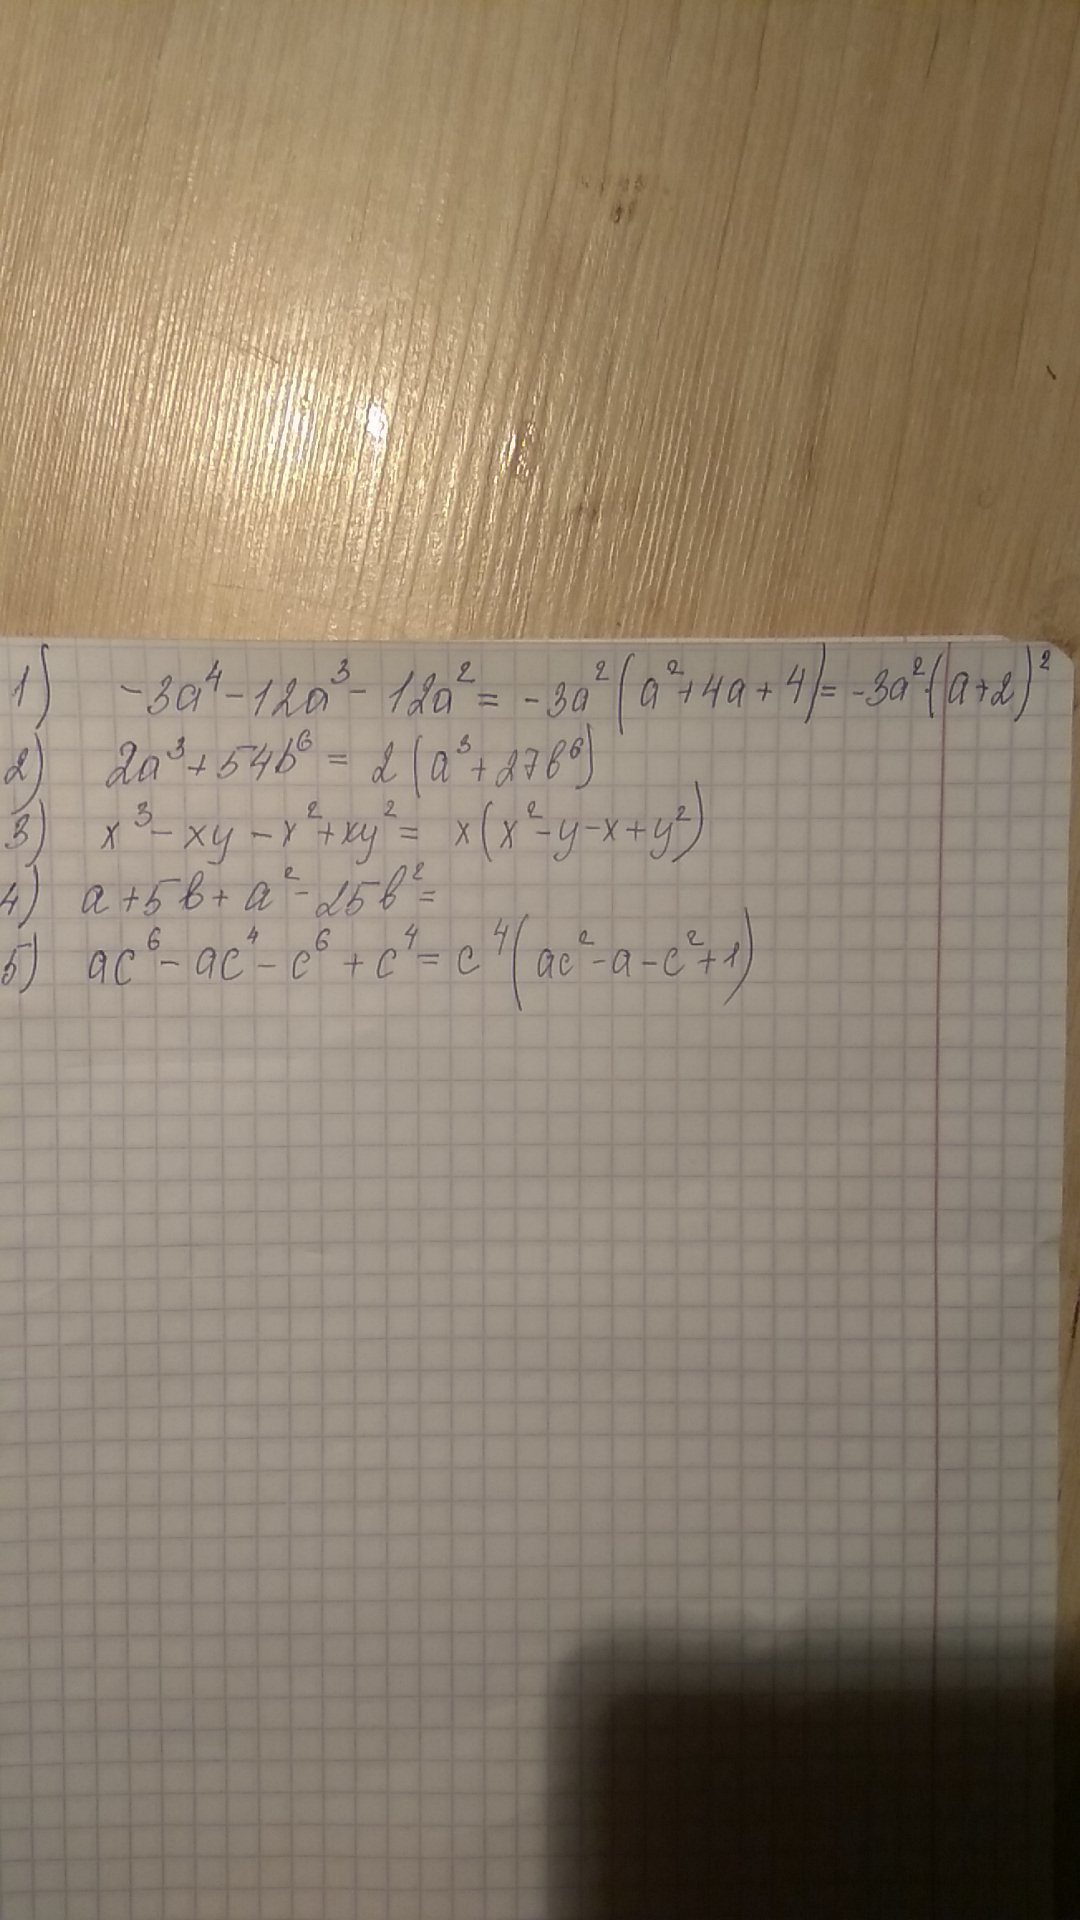 1) -3a⁴-12a³-12a²= -3a²(a²+4a+4)= -3a²·(a+2)²
2) 2a³+54b⁶ = 2(a³+27b⁶)
3) x³-xy-x²+xy²= x(x²-y-x+y²)
4) a+5b+a²-25b²=
5) ac⁶-ac⁴-c⁶+c⁴= c⁴(ac²-a-c²+1)